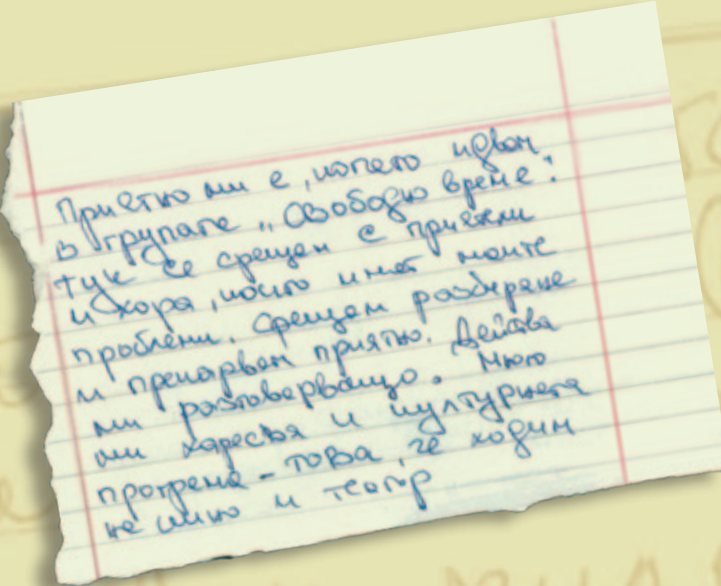 Приятно ми е, когато идвам
в групата „Свободно време“.
Тук се срещам с приятели
и хора, които имат моите
проблеми. Срещам разбиране
и прекарвам приятно. Действа
ми разтоварващо. Много
ми харесва и културната
програма - това, че ходим
на кино и театър